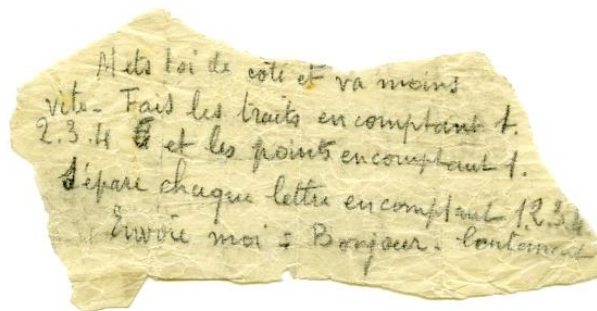 Mets toi de coté et va moins
vite - Fais les traits en comptant 1.
2.3.4 et les points en comptant 1.
Sépare chaque lettre en comptant 1.2.3.4
Envoie moi = Bonjour - lentement